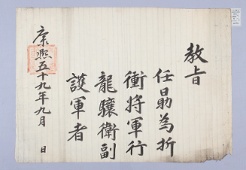 敎旨
任勗為折
衝將軍行
龍驤衛副
護軍者
康熙五十九年九月 日